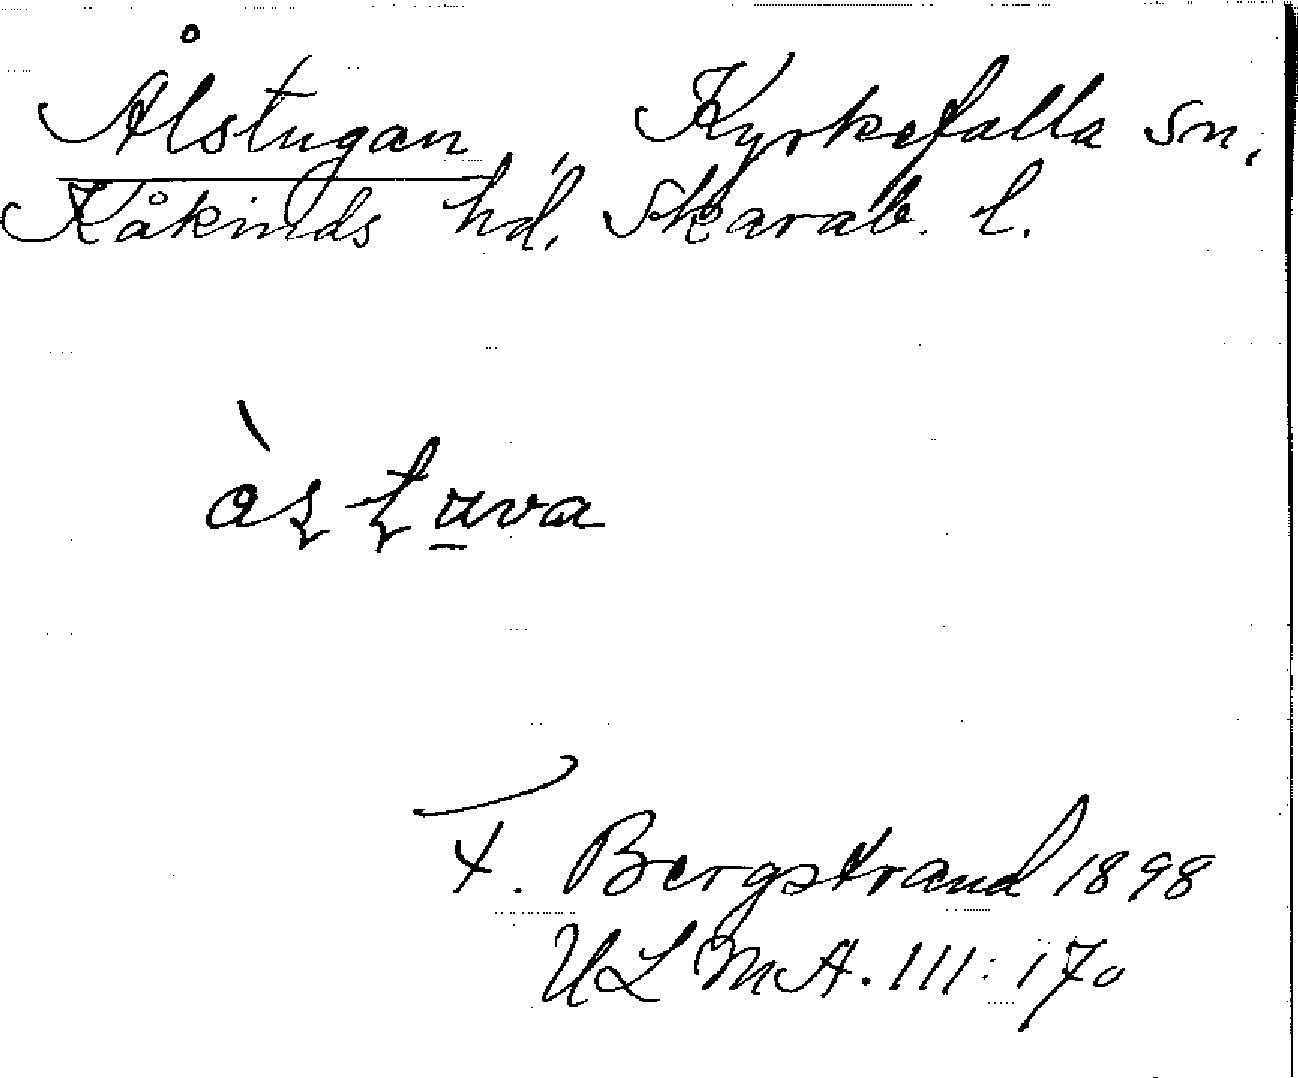 Ålstugan, Kyrkefalla sn,
Kåkinds hd, Skarab. l.
F. Bergstrand 1898
ULMA. 111:170